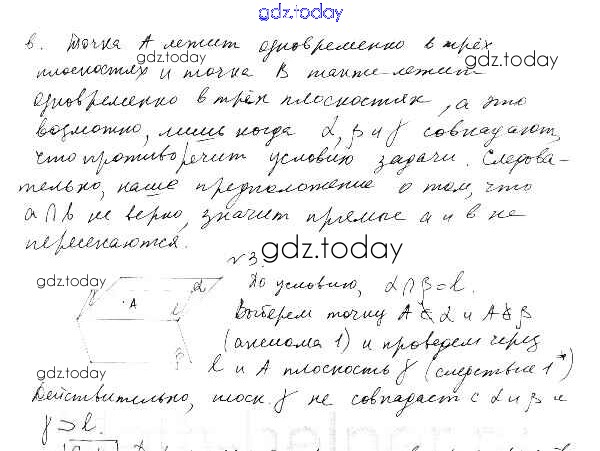 gdz.today
в. Точка A лежит одновременно в трёх
gdz.today gdz.today
плоскостях и точка B также лежит
одновременно в трёх плоскостях, а это
возможно, лишь когда α, β и γ совпадают,
что противоречит условию задачи. Следова-
тельно, наше предположение о том, что
a ∩ b не верно, значит прямые a и b не
пересекаются.
gdz.today
№3.
gdz.today
По условию, α ∩ β = l.
α
A
l
β
Выберем точку A ∉ α и A ∉ β
(аксиома 1) и проведем через
l и A плоскость γ (следствие 1*)
gdz.today
Действительно, плоск. γ не совпадает с α и β и
γ ⊃ l.